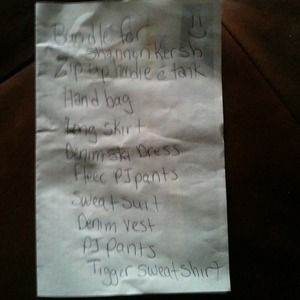 Bundle for
shannon Kersh
Zip up hoodie & tank
Hand bag
Long skirt
Denim ski Dress
Fleec PJ pants
Sweat suit
Denim vest
PJ pants
Tigger sweatshirt